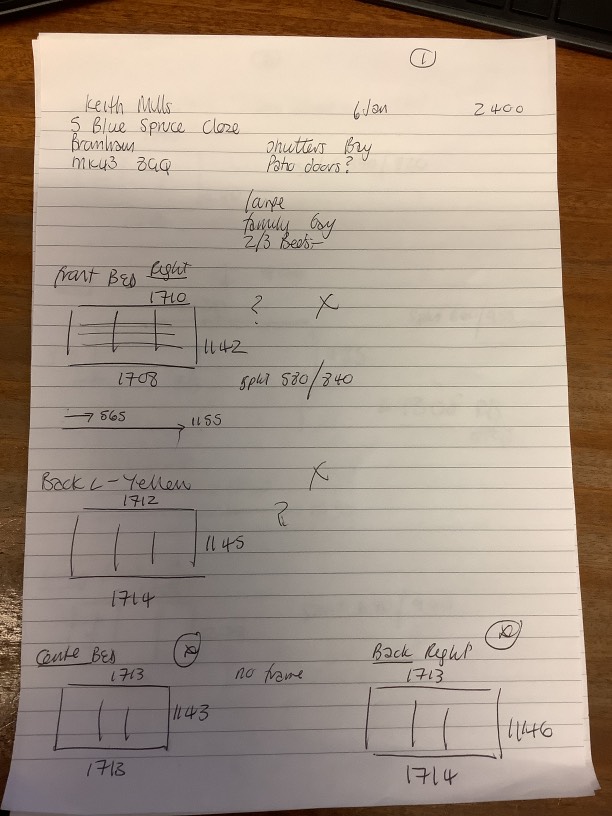 1
Keith Mills 6 Jan 2400
5 Blue Spruce Close
Bromham shutters Bay
MK43 8GQ Patio doors?
large
family bay
2/3 Beds:-
front BED Right
1710 ? X
1142
1708 split 580/840
→ 565 1155
Back L - Yellow X
1712 ?
1145
1714
Centre BED Back Right
1713 no frame 1713
1143 1146
1713 1714